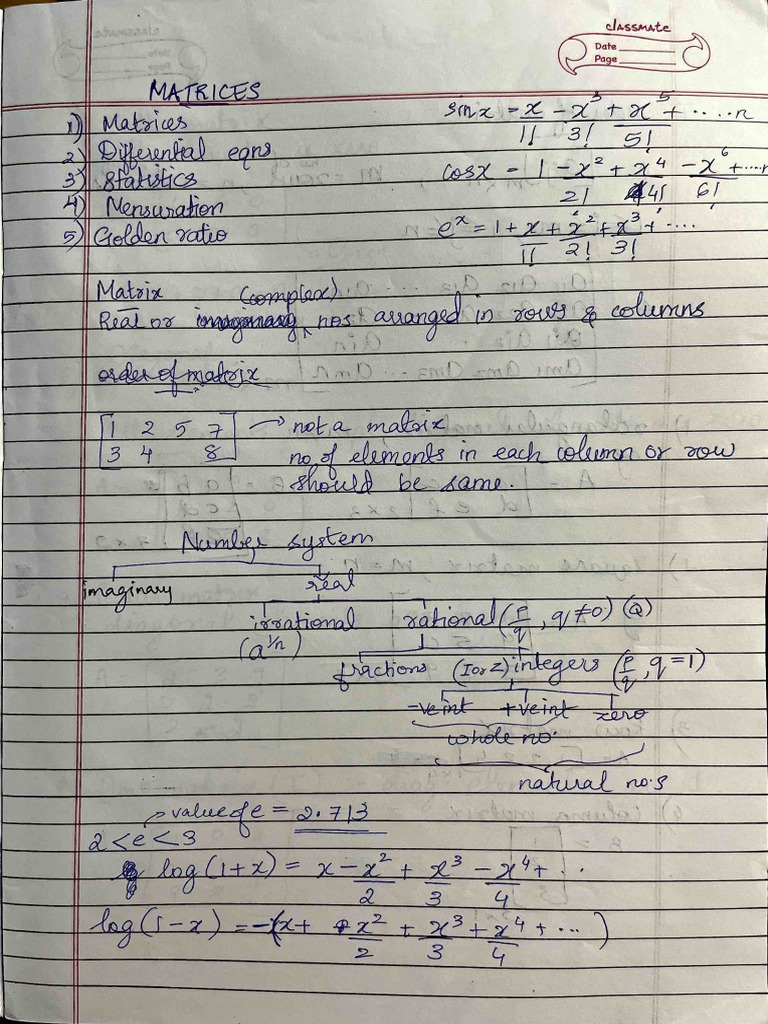 classmate
Date
Page
MATRICES
1) Matrices
2) Differential eqns
3) Statistics
4) Mensuration
5) Golden ratio
sinx = x/1! - x³/3! + x⁵/5! + .....n
cosx = 1 - x²/2! + x⁴/4! - x⁶/6! + ....n
eˣ = 1 + x/1! + x²/2! + x³/3! + ....
Matrix (complex)
Real or imaginary nos arranged in rows & columns
order of matrix
[1 2 5 7
3 4 8] → not a matrix
no of elements in each column or row
should be same.
Number system
imaginary real
irrational rational (p/q, q≠0) (Q)
(a^1/n)
fractions (I or Z) integers (p/q, q=1)
-ve int +ve int zero
whole no.
natural no.s
value of e = 2.713
2 < e < 3
log(1+x) = x - x²/2 + x³/3 - x⁴/4 + ..
log(1-x) = -(x + x²/2 + x³/3 + x⁴/4 + ... )